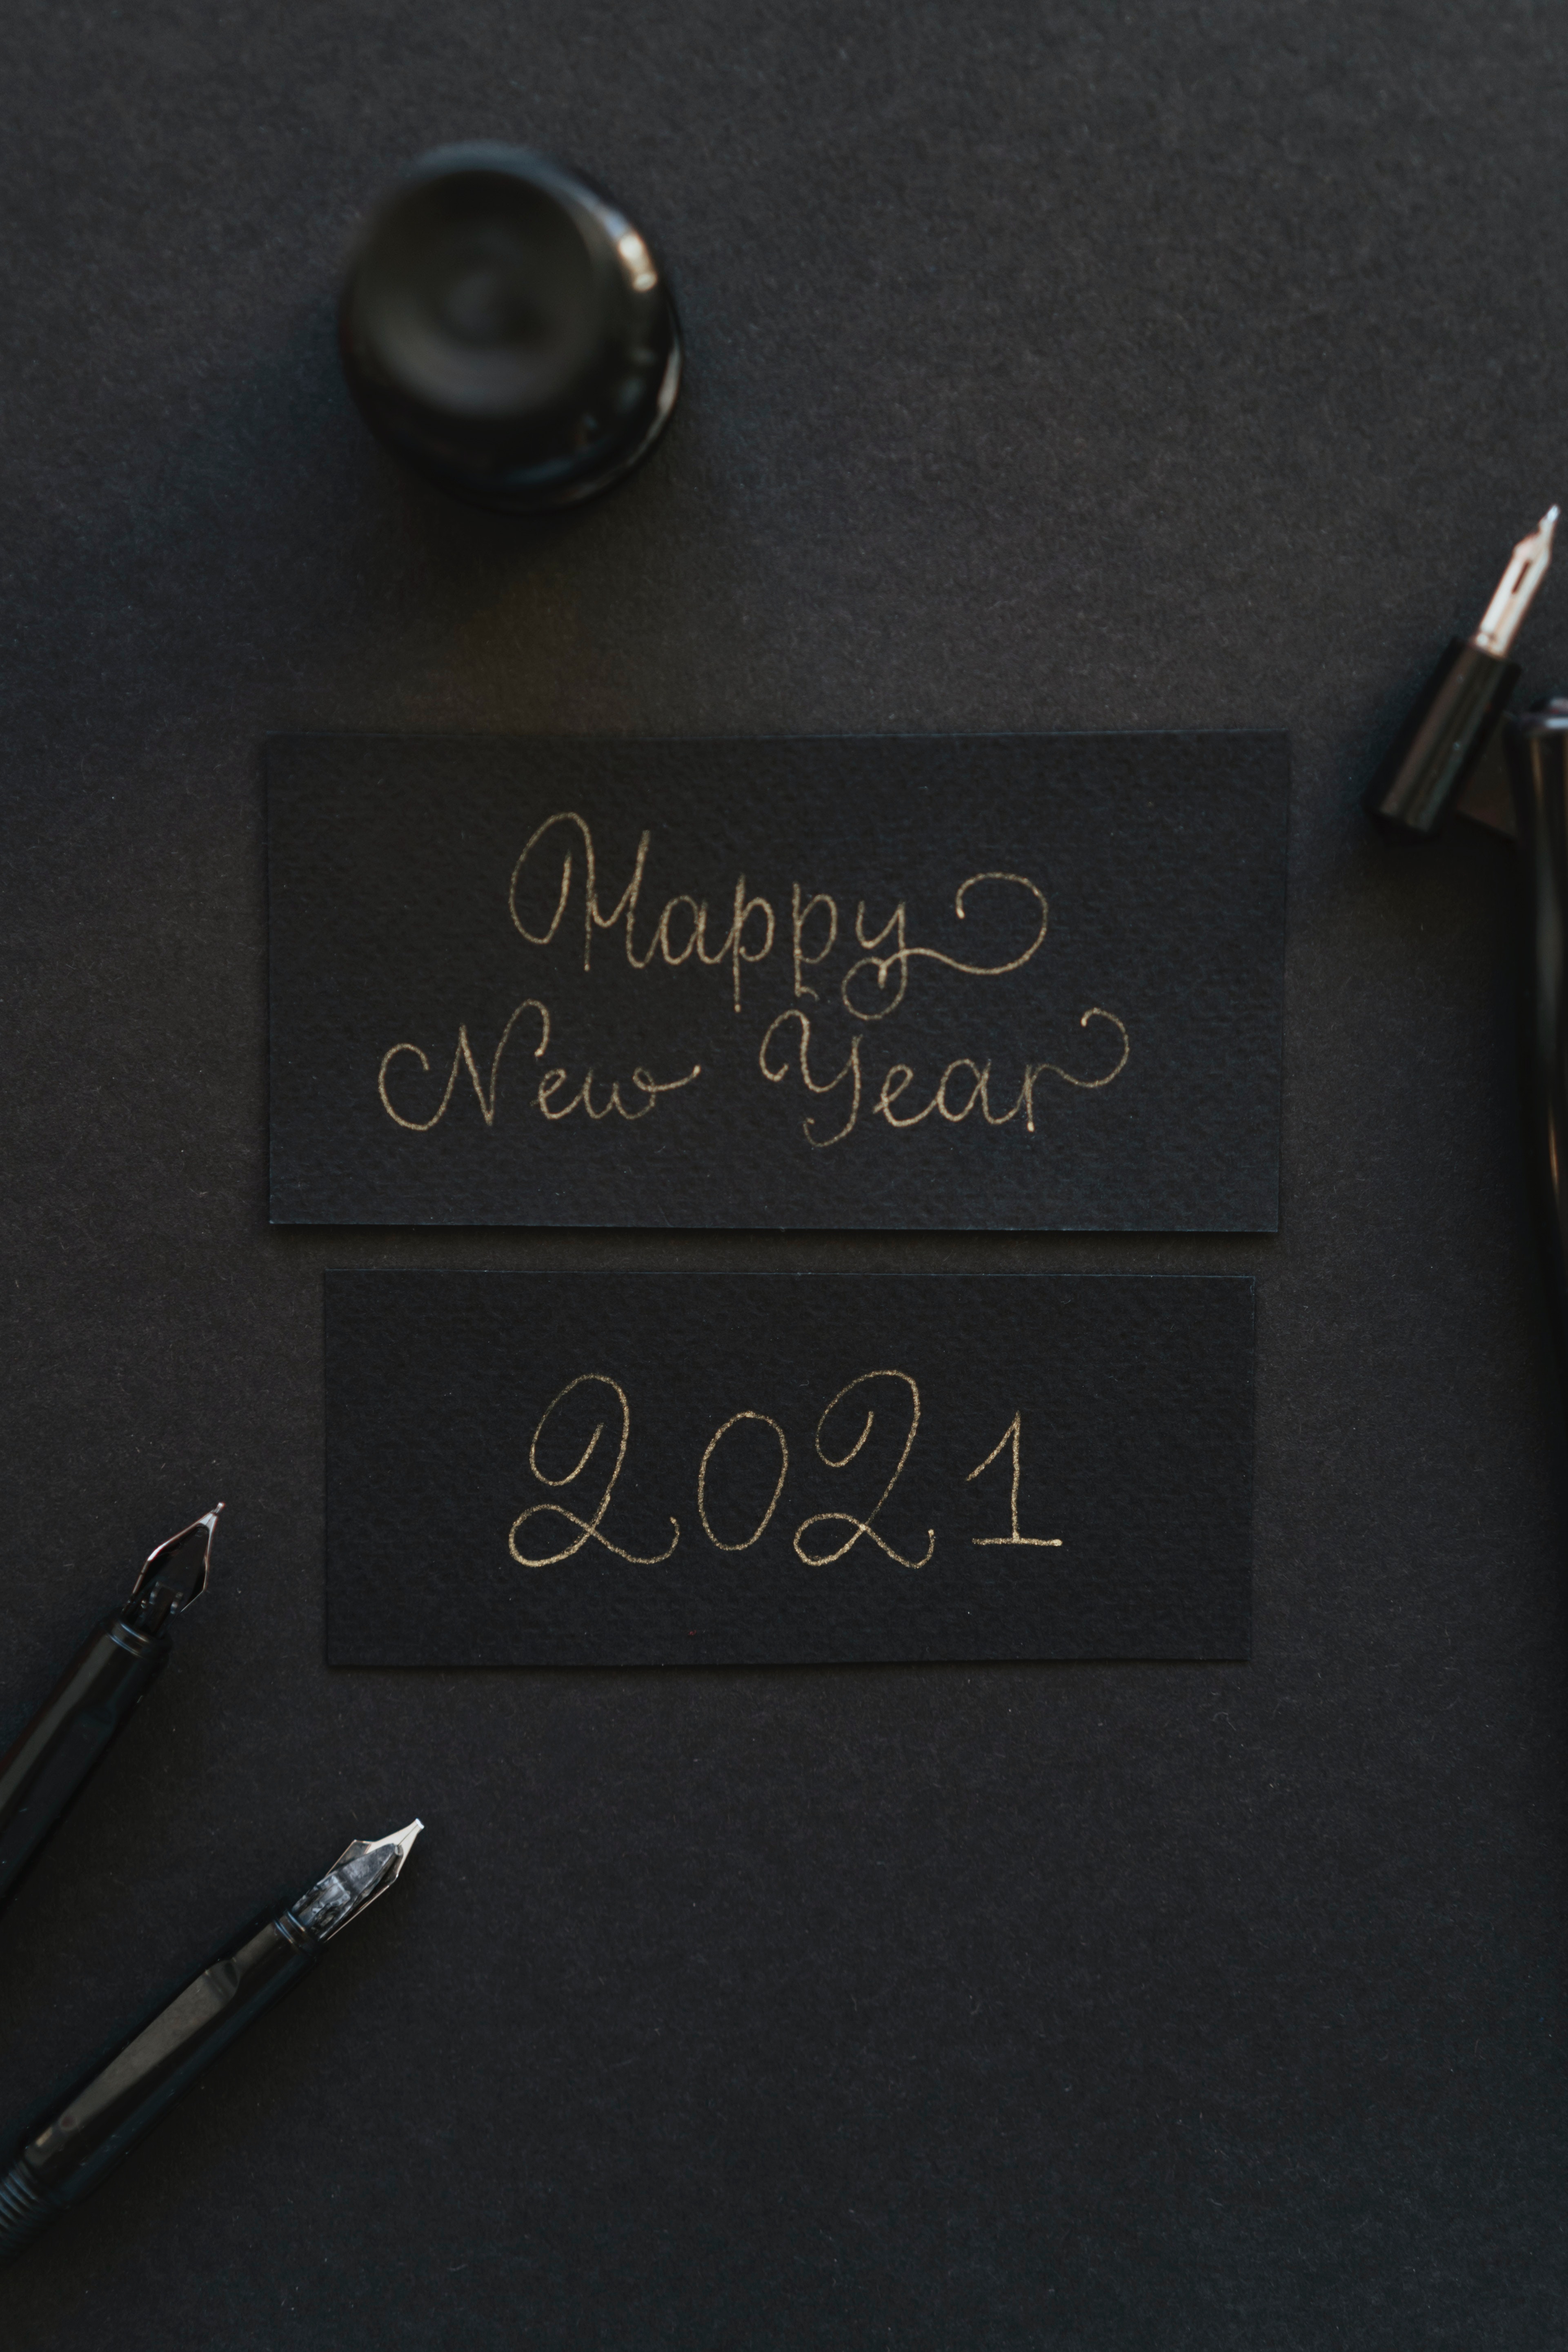 Happy
New Year
2021